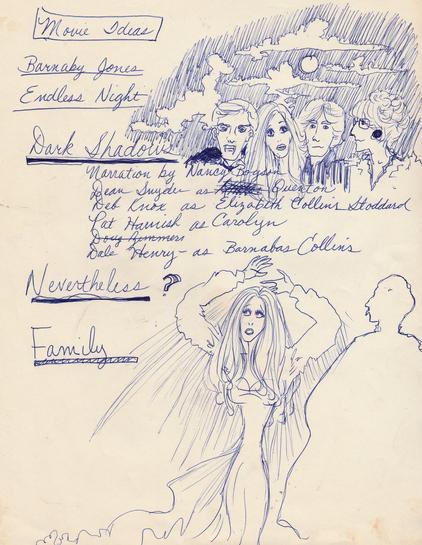 Movie Ideas
Barnaby Jones
Endless Night
Dark Shadows
Narration by Nancy
Dean Snyder as Quenton
Deb Knox as Elizabeth Collins Stoddard
Pat Harrish as Carolyn
Doug
Dale Henry - as Barnabas Collins
Nevertheless ?
Family